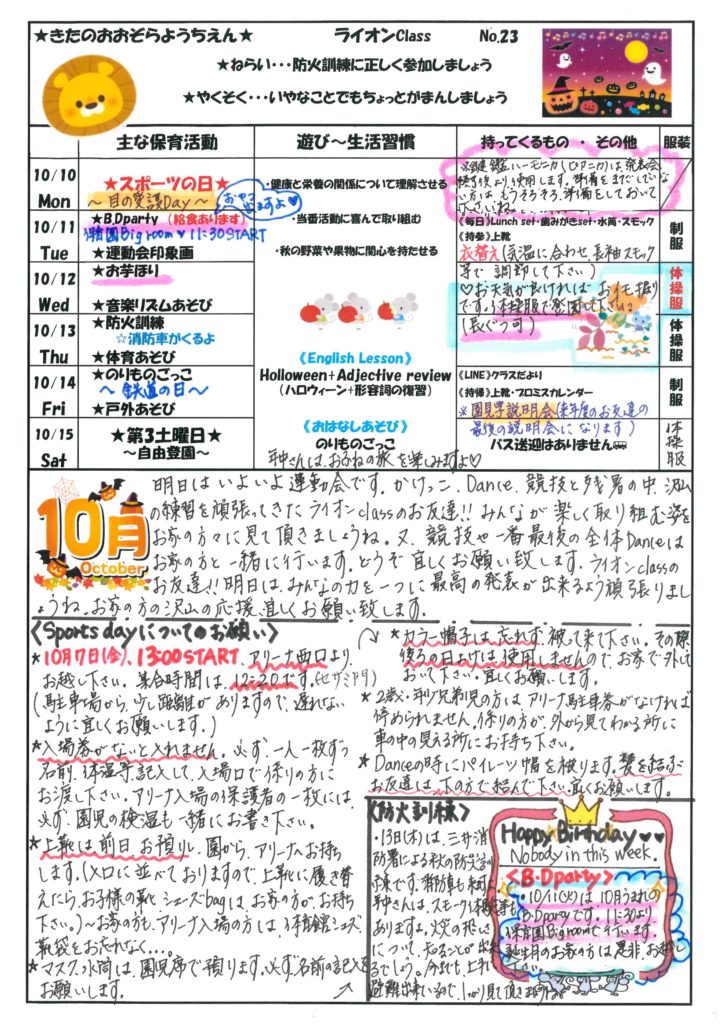 ★きたのおおぞらようちえん★ ライオンClass No.23
★ねらい・・・防火訓練に正しく参加しましょう
★やくそく・・・いやなことでもちょっとがまんしましょう
主な保育活動 遊び～生活習慣 持ってくるもの ・ その他 服装
10/10
Mon
★スポーツの日★
～目の愛護Day～
※鍵盤ハーモニカ(ピアニカ)は、発表会
終了後より使用します。準備をまだしていな
い方は、もうそろそろ準備をしておいて
下さいね。
・健康と栄養の関係について理解させる
・当番活動に喜んで取り組む
・秋の野菜や果物に関心を持たせる
10/11
Tue
★B.Dparty (給食あります)
保育園Big room♥11:30START
★運動会印象画
《毎日》Lunch set・歯みがきset・水筒・スモック
《持参》上靴
衣替え(気温に合わせ、長袖スモック
等で調節して下さい)
制服
10/12
Wed
★お芋ほり
★音楽リズムあそび
♡お天気が良ければ、おイモ掘り
です。体操服で登園して下さい。
(長ぐつ可)
体操服
10/13
Thu
★防火訓練
☆消防車がくるよ
★体育あそび
体操服
《English Lesson》
Holloween+Adjective review
(ハロウィーン+形容詞の復習)
10/14
Fri
★のりものごっこ
～鉄道の日～
★戸外あそび
《LINE》クラスだより
《持帰》上靴・プロミスカレンダー
※園見学説明会(来年度のお友達の
最後の説明会になります)
制服
10/15
Sat
★第3土曜日★
～自由登園～
《おはなしあそび》
のりものごっこ
年中さんは、おふねの旅を楽しみますよ♡
バス送迎はありません
体操服
10月
October
明日はいよいよ運動会です。かけっこ、Dance、競技と残暑の中、沢山
の練習を頑張ってきたライオンclassのお友達!!みんなが楽しく取り組む姿を
お家の方々に見て頂きましょうね。又、競技や一番最後の全体Danceは
お家の方と一緒に行います。どうぞ宜しくお願い致します。ライオンclassの
お友達!!明日は、みんなの力を一つに最高の発表が出来るよう頑張りまし
ょうね。お家の方の沢山の応援、宜しくお願い致します。
《Sports dayについてのお願い》
★10月7日(金)、13:00START、アリーナ西口より
お越し下さい。集合時間は、12:20です。
(駐車場から、少し距離がありますので、遅れない
ように宜しくお願いします。)
★入場券がないと入れません。必ず、一人一枚ずつ
名前、体温等記入して、入場口で係りの方に
お渡し下さい。アリーナ入場の保護者の一枚には、
必ず、園児の検温も一緒にお書き下さい。
★上靴は前日お預りし、園から、アリーナへお持ち
します。(入口に並べておりますので上靴に履き替
えたら、お子様の靴、シューズbagは、お家の方がお持ち
下さい。)～お家の方も、アリーナ入場の方は、体育館シューズ、
靴袋をお忘れなく…。
★マスク、水筒は、園児席で預ります。必ず名前の記入を
お願いします。
★カラー帽子は忘れず被って来て下さい。その際
後ろの日よけは使用しませんのでお家で外して
おいて下さい。宜しくお願いします。
★2歳・年少兄弟児の方は、アリーナ駐車券がなければ
停められません。係りの方が、外から見てわかる所に
車の中の見える所にお持ち下さい。
★Danceの時にパイレーツ帽を被ります。髪を結ぶ
お友達は、下の方で結んで下さい。宜しくお願いします。
《防火訓練》
・13日(木)は、三井消
防署による秋の防災訓
練です。
年中さんは、スモーク体験等も
ありますよ。火災の怖さ
について、知ることが出来
るでしょう。今年も、上手に
避難出来いるので、しっかり見て頂きましょうね。
Happy Birthday♥♥
Nobody in this week.
《B・Dparty》
・10/11(火)は10月うまれの
B.Dpartyです。11:30より
保育園Big roomで行います。
誕生月のお家の方は是非、お越し
下さい。